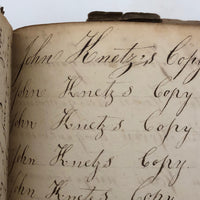 John Knetz's Copy
John Knetz Copy
John Knetz's Copy
John Knetzs Copy.
John Knetzs Copy